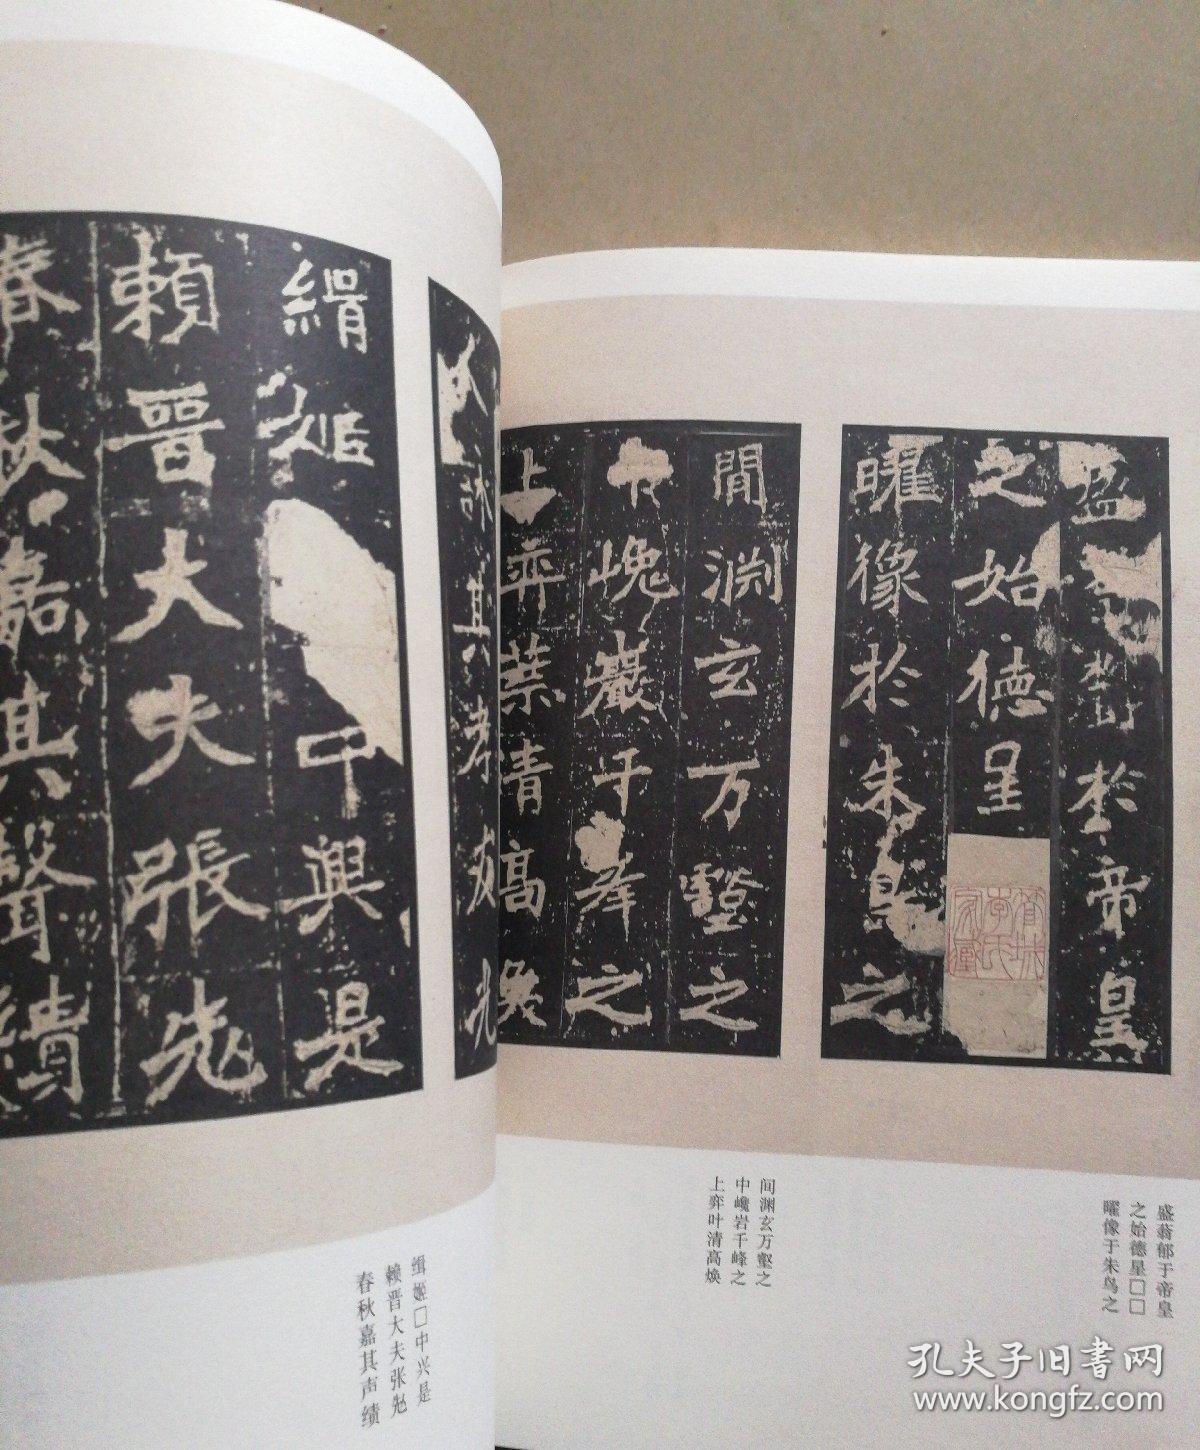 盛於帝皇
之始徳星
曜像於朱鳥之
間渊玄万壑之
中巉巖千峯之
上弈葉清高煥
詠其孝友光
緝姬中興是
賴晉大夫張老
春秋嘉其聲績
盛蓊郁于帝皇
之始德星□□
曜像于朱鸟之
间渊玄万壑之
中巉岩千峰之
上弈叶清高焕
缉姬□中兴是
赖晋大夫张老
春秋嘉其声绩
孔夫子旧書网
www.kongfz.com